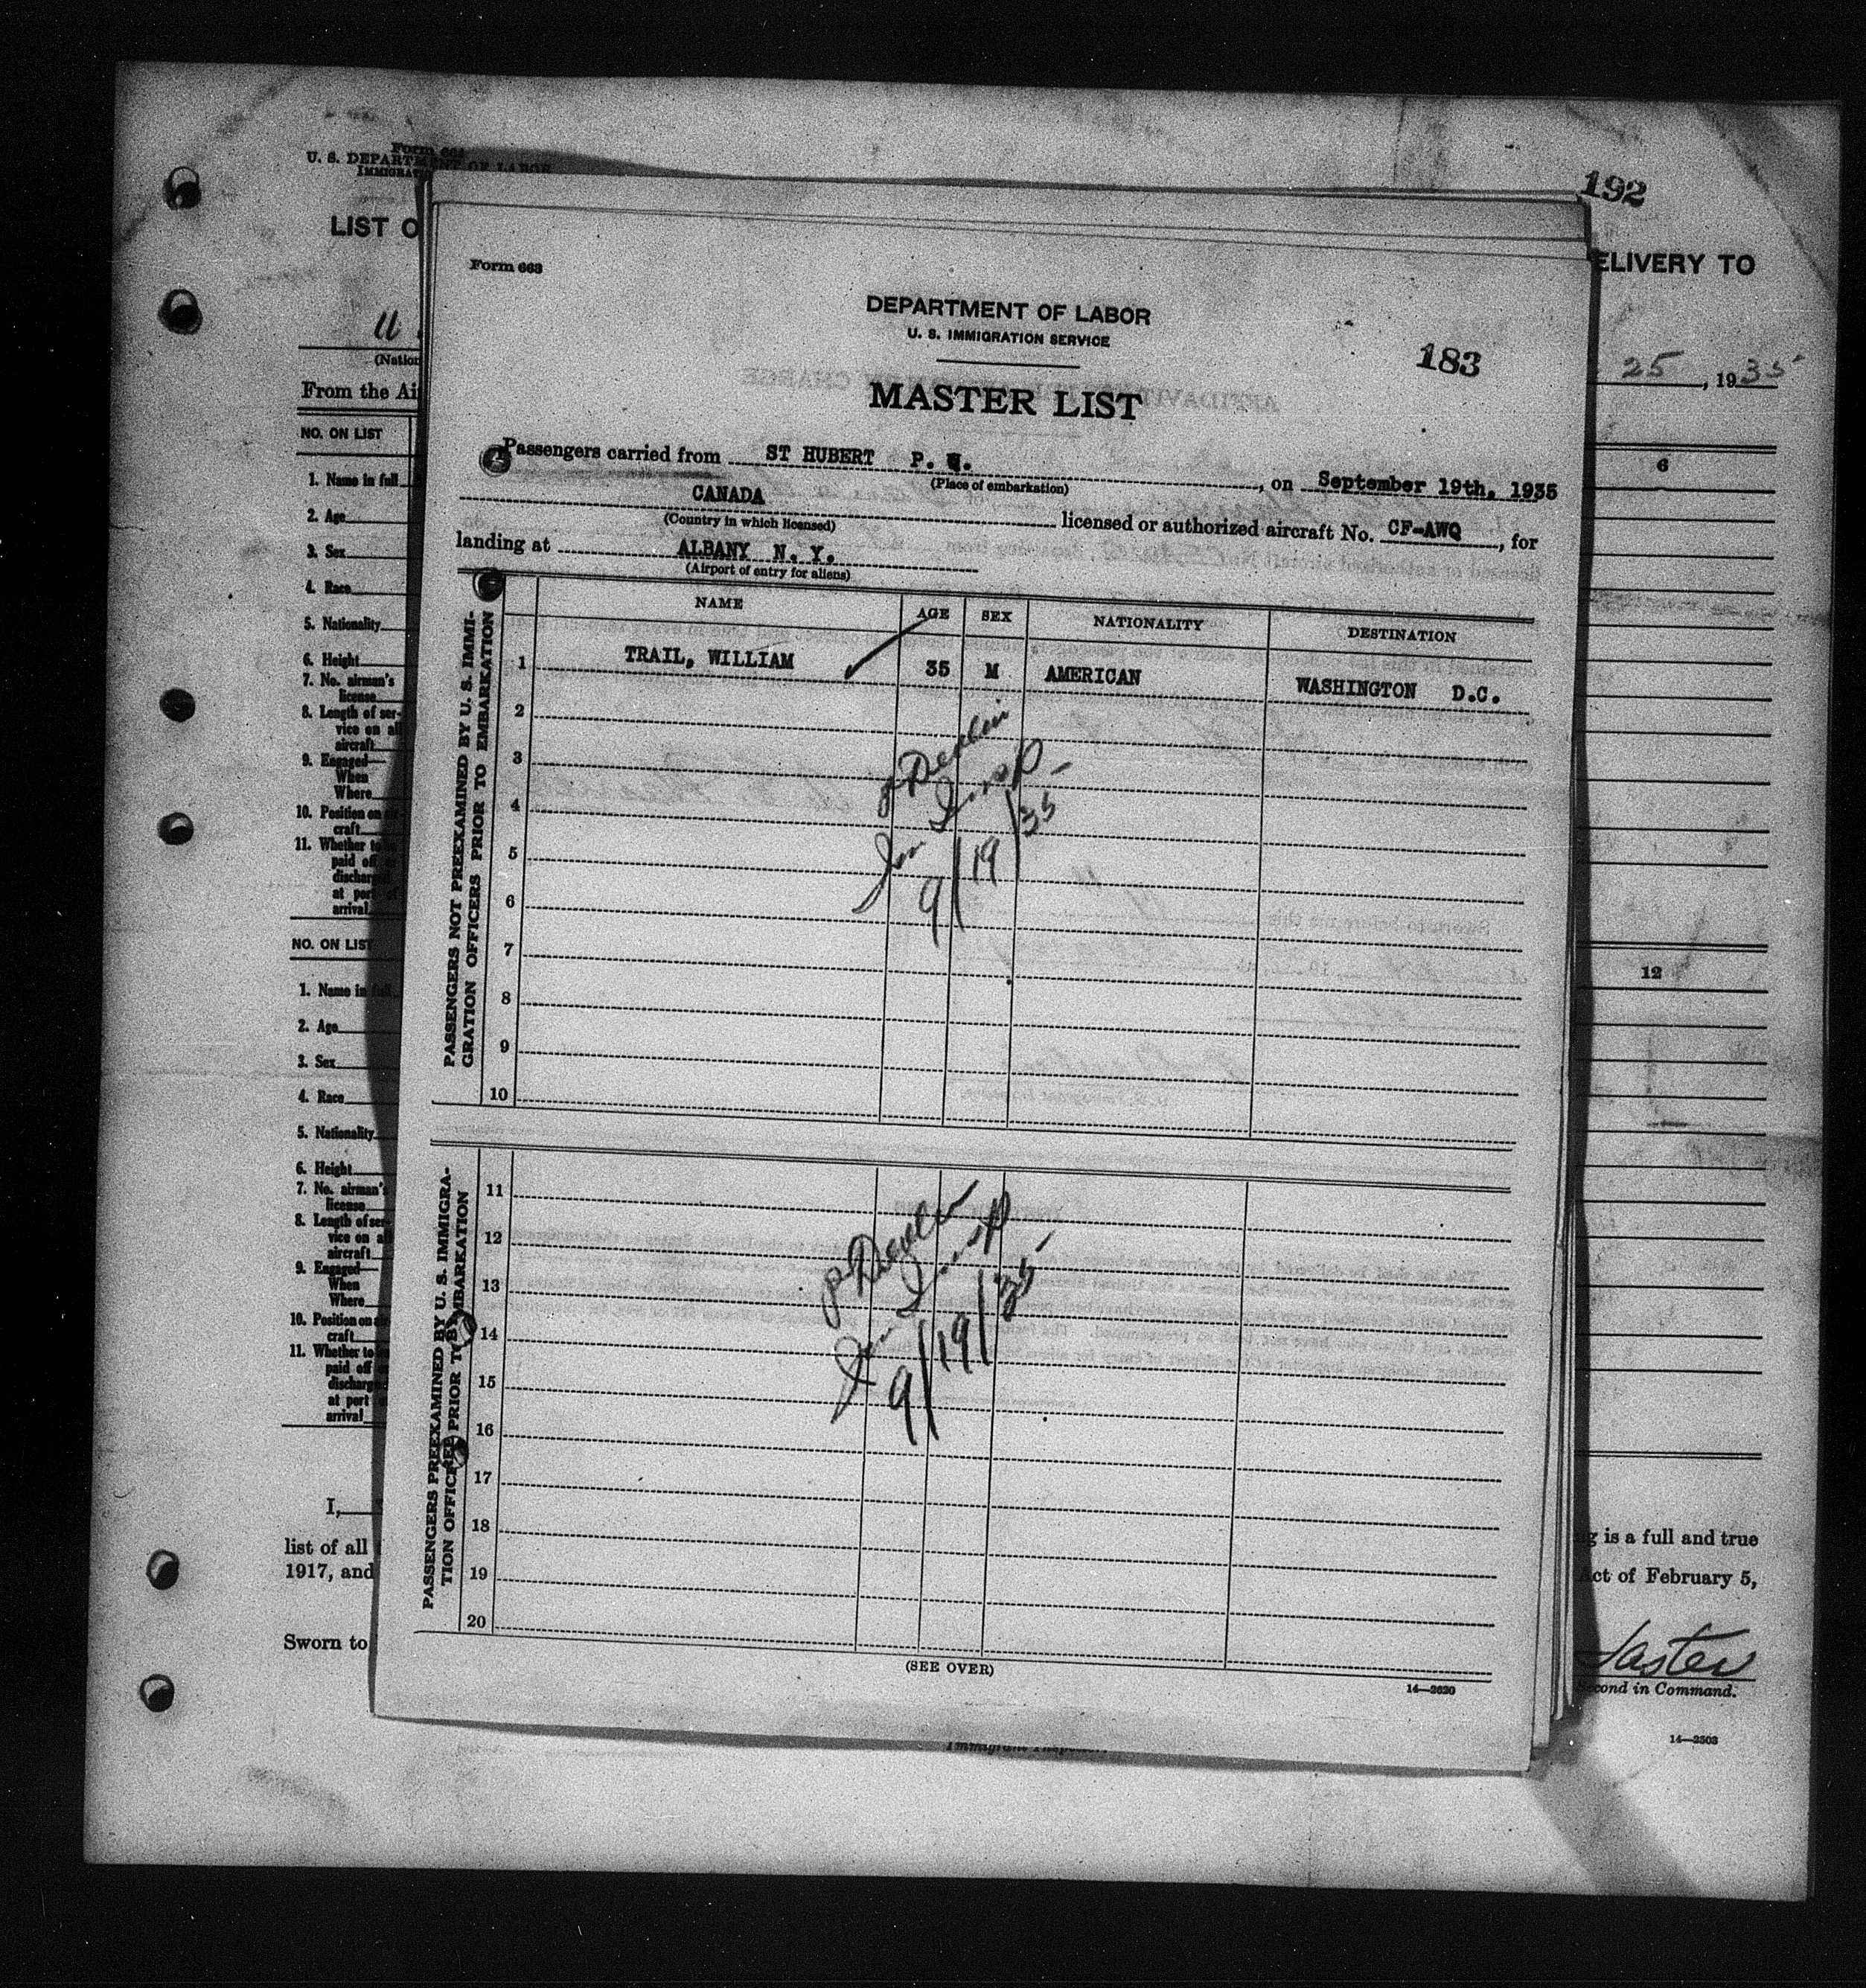 Form 664
U. S. DEPARTMENT OF LABOR
LIST O
192
ELIVERY TO
(Nation
25, 1935
From the Air
NO. ON LIST
6
1. Name in full
2. Age
3. Sex
4. Race
5. Nationality
6. Height
7. No. airman's
license
8. Length of ser-
vice on
aircraft
9. Engaged—
When
Where
10. Position on
craft
11. Whether to
paid off
discharged
at port
arrival
NO. ON LIST
12
1. Name in
2. Age
3. Sex
4. Race
5. Nationality
6. Height
7. No. airman's
license
8. Length of ser-
vice on
aircraft
9. Engaged—
When
Where
10. Position on
craft
11. Whether to
paid off
discharged
at port
arrival
I,
list of all
is a full and true
1917, and
Act of February 5,
Sworn to
Second in Command.
14—2503
Immigrant Inspector.
Form 663
DEPARTMENT OF LABOR
U. S. IMMIGRATION SERVICE
183
MASTER LIST
Passengers carried from ST HUBERT P. Q., on September 19th, 1935
(Place of embarkation)
CANADA licensed or authorized aircraft No. CF-AWQ, for
(Country in which licensed)
landing at ALBANY N. Y.
(Airport of entry for aliens)
NAME AGE SEX NATIONALITY DESTINATION
PASSENGERS NOT PREEXAMINED BY U. S. IMMI-
GRATION OFFICERS PRIOR TO EMBARKATION
1 TRAIL, WILLIAM 35 M AMERICAN WASHINGTON D.C.
2
3
4
5
6
7
8
9
10
P Devlin
Imm Insp
9/19/35
PASSENGERS PREEXAMINED BY U. S. IMMIGRA-
TION OFFICERS PRIOR TO EMBARKATION
11
12
13
14
15
16
17
18
19
20
P Devlin
Imm Insp
9/19/35
(SEE OVER)
14—2620